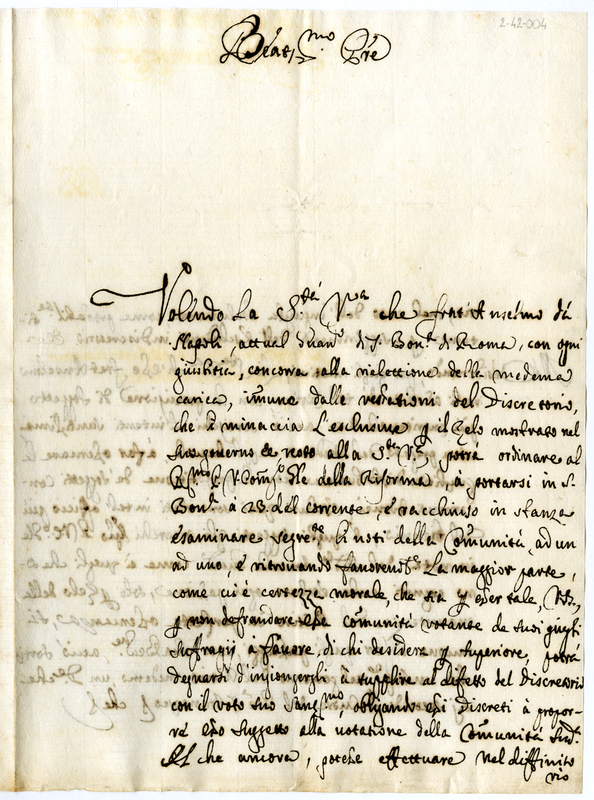 2-42-004
Beat.mo Pře
Volendo La S.tà V.ra che frat'Anselmo da
Napoli, attual Guar.no di S. Bon.ra di Roma, con ogni
giustitia, concorra alla rielettione della medema
carica, imune dalle vessationi del Discretorio,
che li minaccia l'esclusiva p il zelo mostrato nel
suo governo e noto alla S.tà V.ra, potrà ordinare al
R.mo P. V. Com.rio Gle della Riforma, à portarsi in S.
Bon.ra à 23. del corrente, e racchiuso in stanza
esaminare segre.te li voti della Comunità, ad un
ad uno, e ritrovando favorend.e La maggior parte,
come cui è certezza morale, che sia p esser tale,
p non defraudare essa comunità votante de suoi giusti
suffragij à favore, di chi desidera p superiore, potrà
degnarsi d'ingiongergli à supplire al difetto del Discretorio
con il voto suo Sant.mo, obligando essi Discreti à propor-
re esso suggetto alla votatione della Comunità sud.ta
Il che ancora, potese effettuare nel diffinito
rio